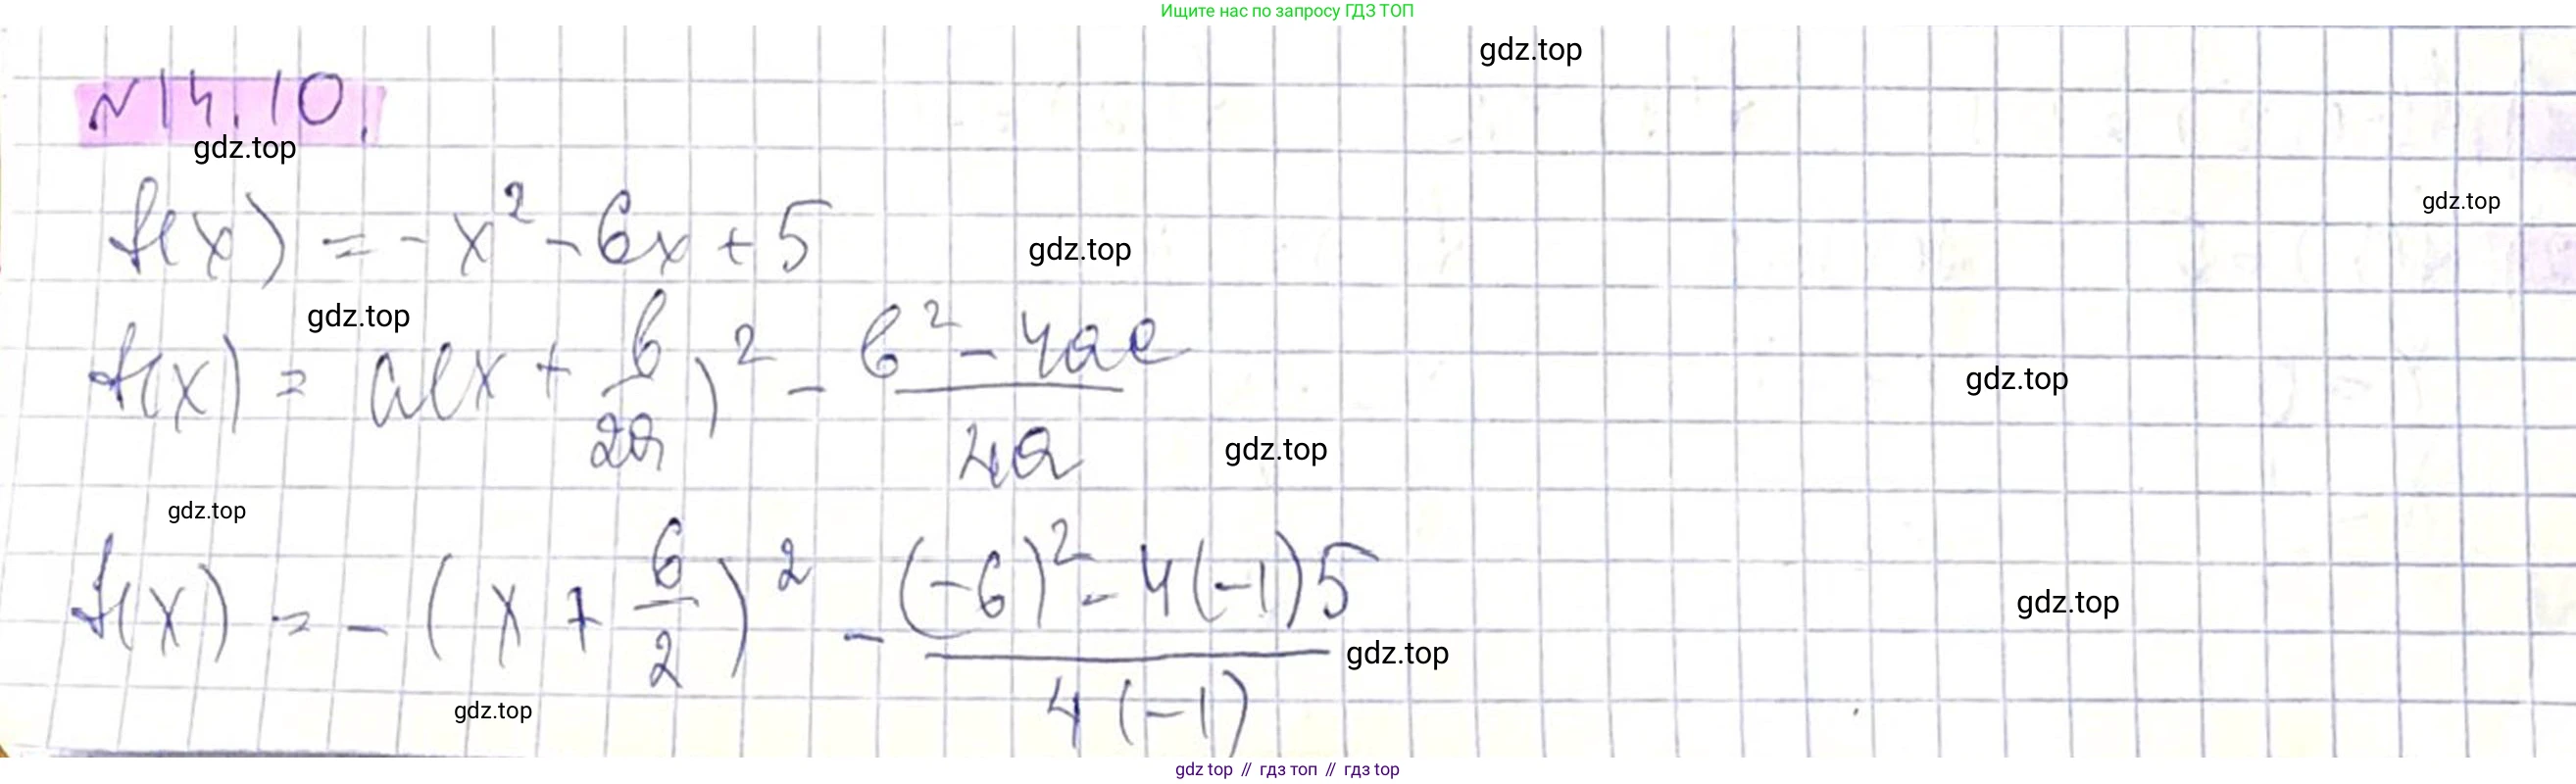 Ищите нас по запросу ГДЗ ТОП
gdz.top
№14.10.
gdz.top
gdz.top
f(x) = -x² - 6x + 5
gdz.top
gdz.top
f(x) = a(x + b/2a)² - b² - 4ac / 4a
gdz.top
gdz.top
gdz.top
f(x) = -(x + 6/2)² - (-6)² - 4(-1)5 / 4(-1)
gdz.top
gdz.top
gdz.top
gdz top // гдз топ // гдз top